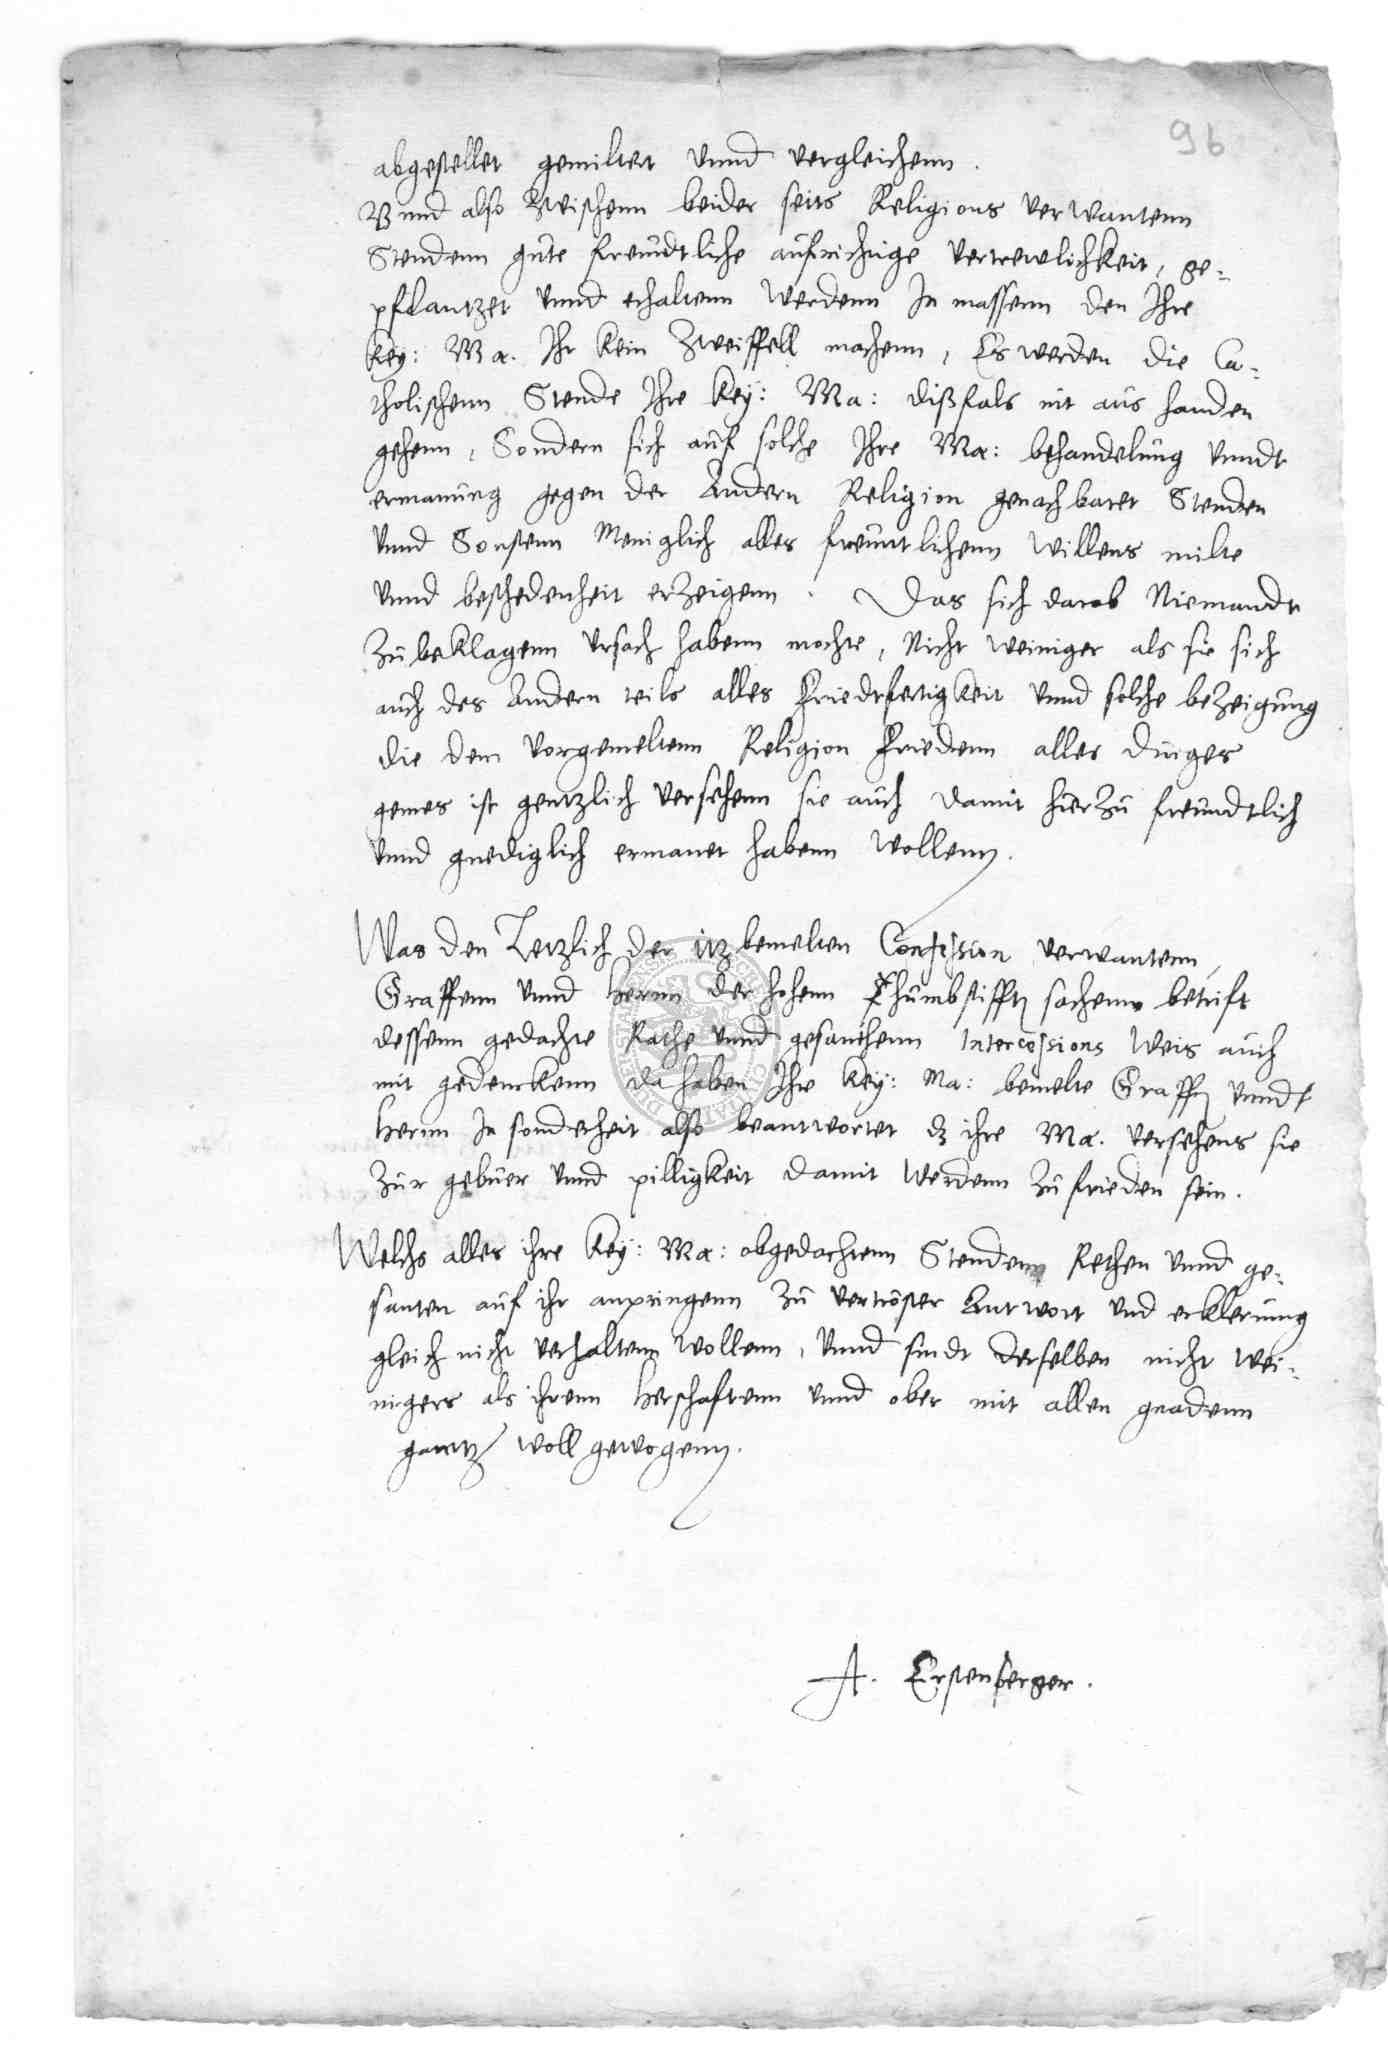 96
abgestellet gemiltert vnnd vergleichenn.
Vnnd also Zwischenn beider seits Religions verwantenn
Stendenn gute freundtliche aufrichtige vertrewlichkeit, ge-
pflantzet vnnd erhaltenn werdenn In massenn den Ihre
Key: Ma. Ihr kein Zweiffell machenn, Es werden die Ca-
tholischenn Stende Ihre Key: Ma: dißfals nit aus handen
gehenn, Sondern sich auf solche Ihre Ma: behandelung vnndt
ermanung gegen der Andern Religion genachbarter Stenden
vnnd Sonstenn Meniglich alles freuntlichenn willens milte
vnnd beschedenheit erzeigenn. Das sich darob Niemandt
Zu beklagenn vrsach habenn mochte, Nicht weiniger als sie sich
auch des Andern teils alles Friedtfertigkeit vnnd solche bezeigung
die dem vorgemeltenn Religion Friedenn alles dinges
gemes ist gentzlich versehenn sie auch damit hierzu freundtlich
vnnd gnediglich ermanet habenn wollenn.
Was den Letzlich der itz bemelten Confession verwantenn,
Graffenn vnnd Herrnn der hohenn Thumbstifften sachenn betrift
dessenn gedachte Rathe vnnd gesanthenn Intercessions weis auch
mit gedenckenn da haben Ihre Key: Ma: bemelte Graffen vnndt
Herrnn In sonderheit also beantwortet dz ihre Ma. versehens sie
Zur gebuer vnnd pilligkeit damit werdenn Zu frieden sein.
Welchs alles ihre Key: Ma: obgedachtenn Stendenn Rethen vnnd ge-
santen auf ihr anpringenn Zu vertröster Antwort vnd erklerung
gleich nicht verhaltenn wollenn, vnnd sindt derselben nicht wei-
nigers als ihrenn Herschaftenn vnnd ober mit allen gnadenn
gantz woll gewogenn.
A. Erstenberger.